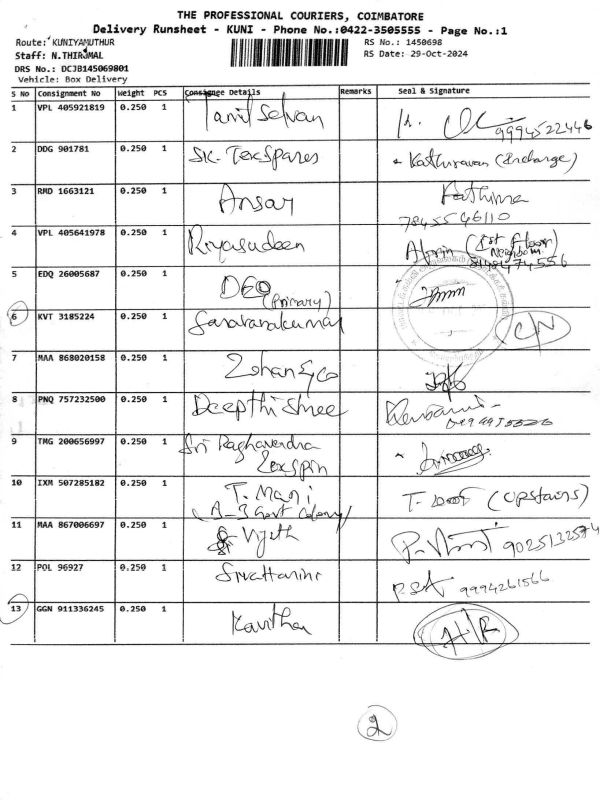 THE PROFESSIONAL COURIERS, COIMBATORE
Delivery Runsheet - KUNI - Phone No.:0422-3505555 - Page No.:1
Route: KUNIYAMUTHUR RS No.: 1450698
Staff: N.THIRUMAL RS Date: 29-Oct-2024
DRS No.: DCJB145069801
Vehicle: Box Delivery
S No Consignment No Weight PCS Consignee Details Remarks Seal & Signature
1 VPL 405921819 0.250 1 Tamil Selvan 9994522446
2 DDG 901781 0.250 1 SK. TexSpares Kathiravan (Incharge)
3 RMD 1663121 0.250 1 Ansar Fathima
7845546110
4 VPL 405641978 0.250 1 Riyasudeen Afrin (Ist Floor)
Neighbour
5 EDQ 26005687 0.250 1 DEO
(Primary)
6 KVT 3185224 0.250 1 Saravanakumar C/N
7 MAA 868020158 0.250 1 Zohan & Co
8 PNQ 757232500 0.250 1 Deepthi Shree
9 TMG 200656997 0.250 1 Sri Raghavendra
Texspin
10 IXM 507285182 0.250 1 T. Mani T. (Upstairs)
(A-3 Govt Colony)
11 MAA 867006697 0.250 1 Vijeth 9025132574
12 POL 96927 0.250 1 9994261566
13 GGN 911336245 0.250 1 Kavitha H/R
2